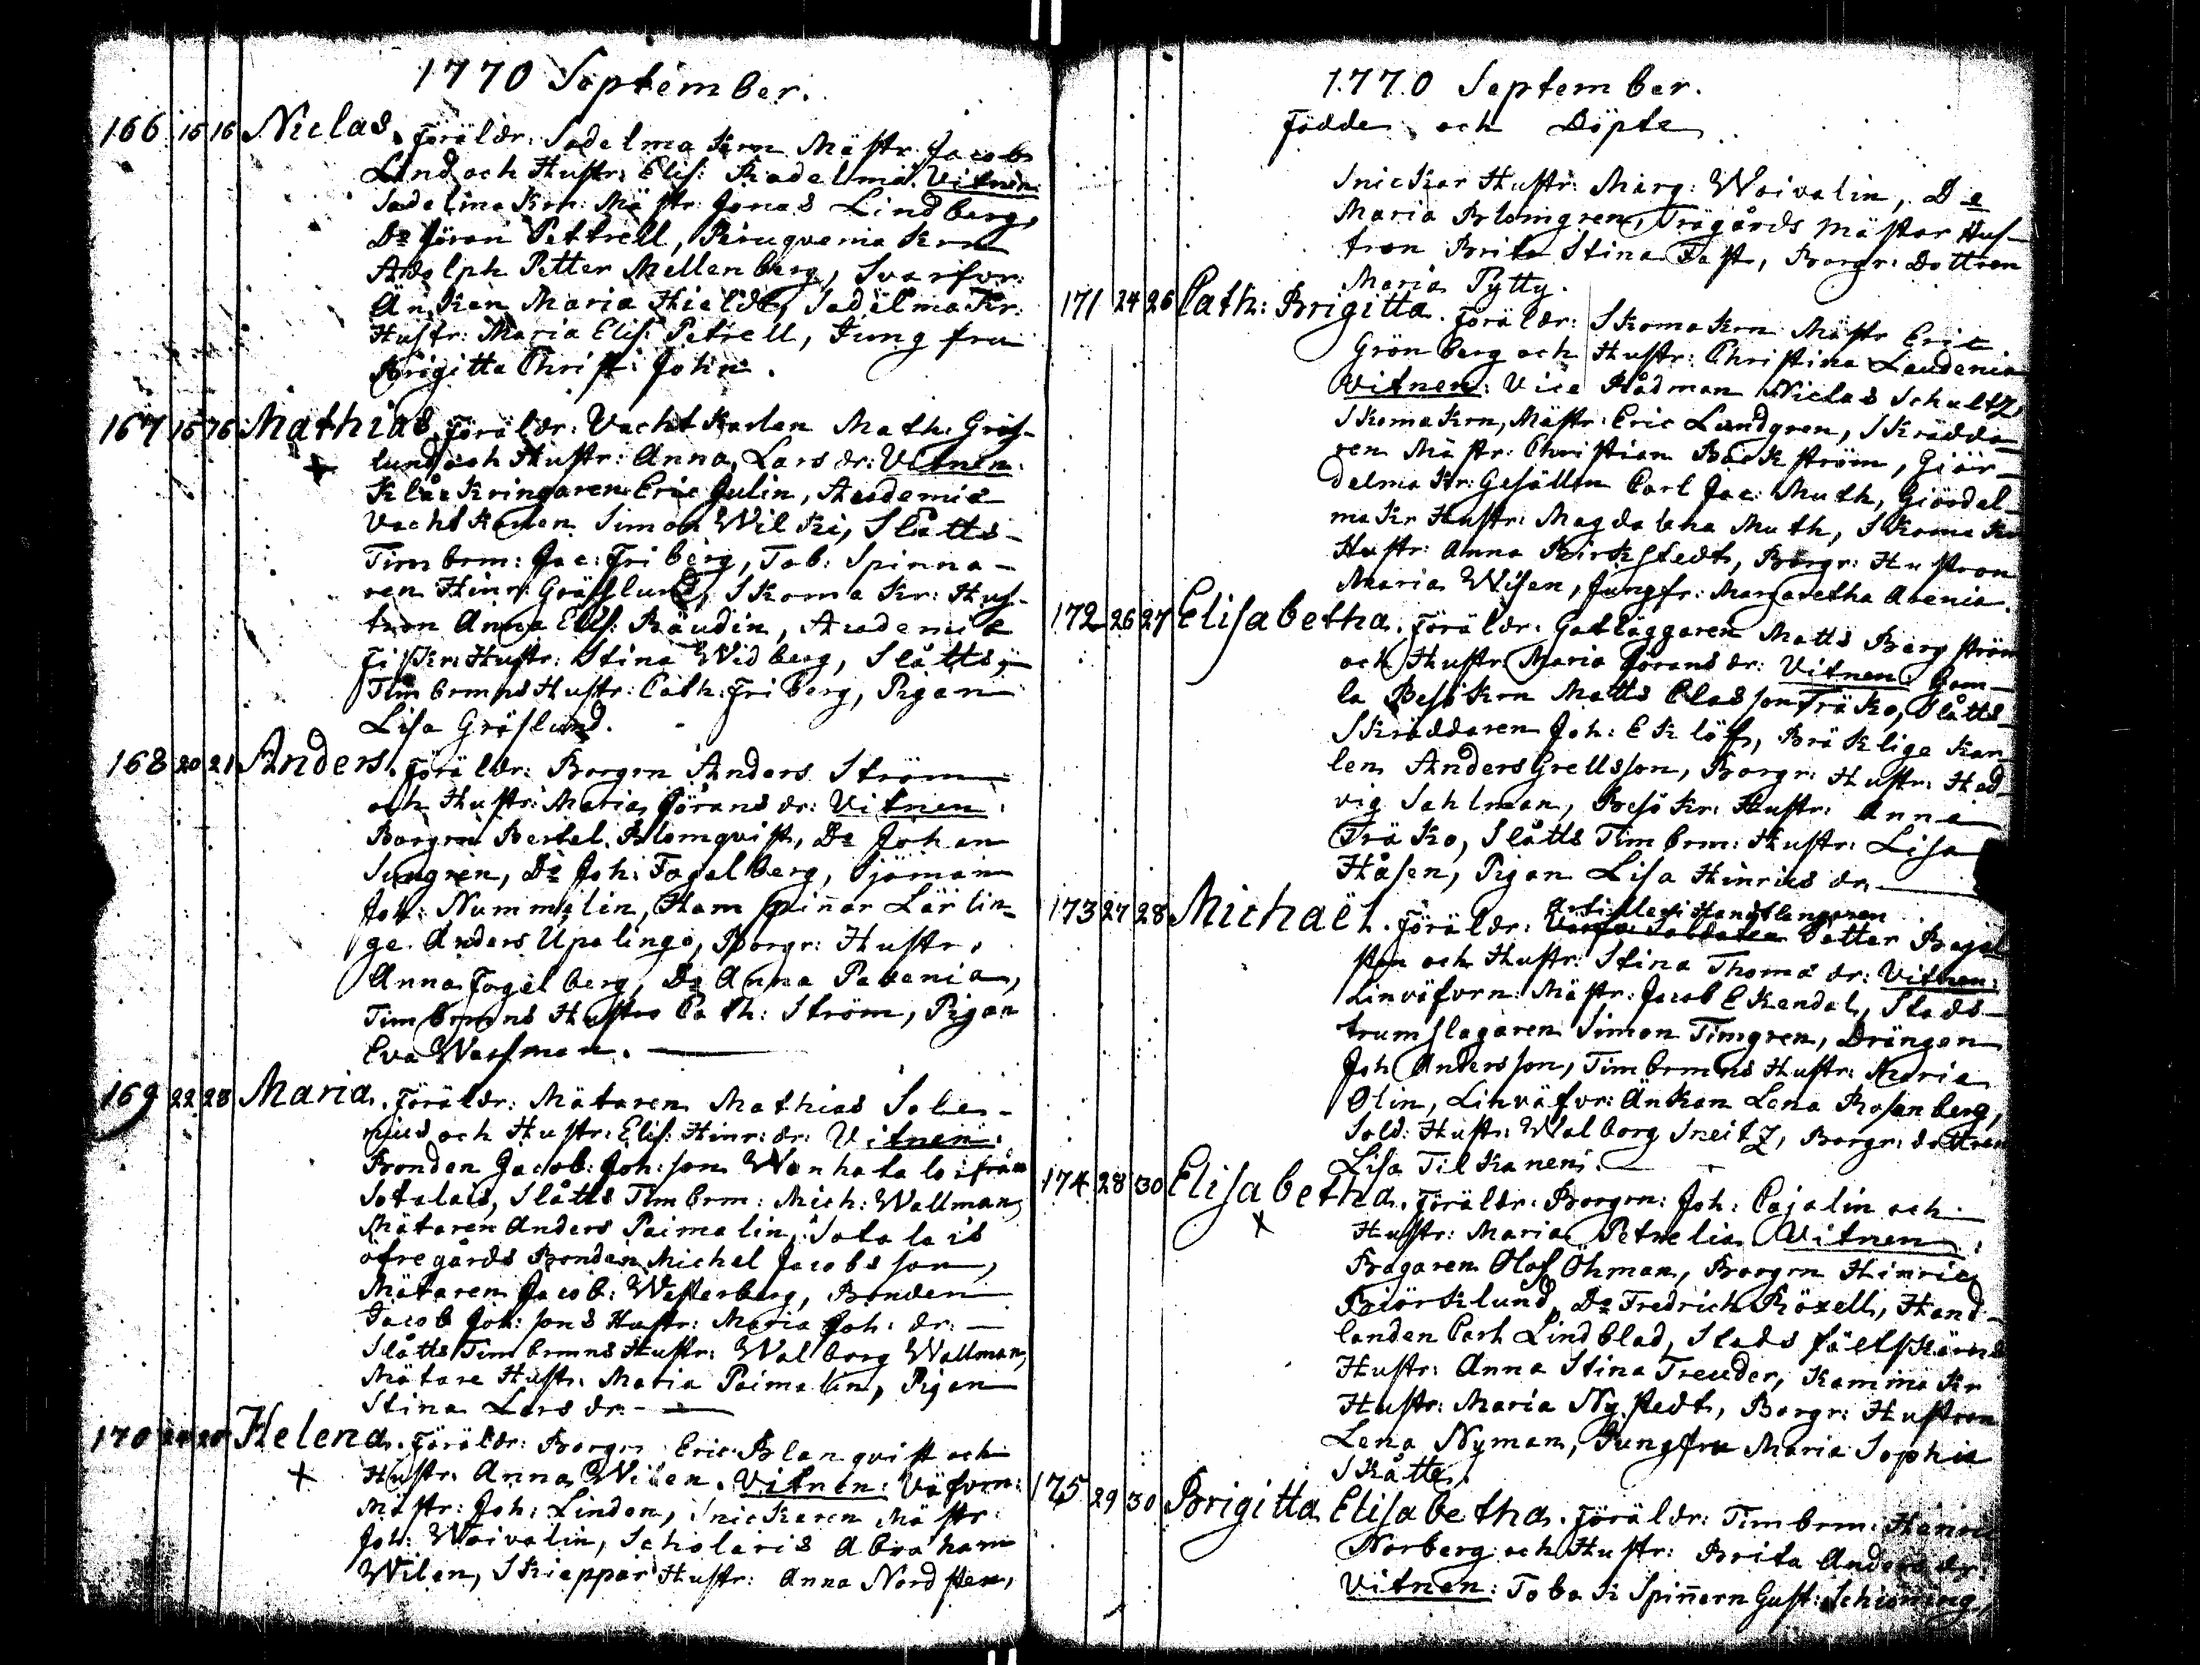 1770 September.
166 15 16 Niclas. Föräldr: Sadelmakrn Mästr. Jacob
Lind och Hustr: Elis: Radelma. Vitnen:
Sadelmakrn: Mästr: Jonas Lindberg,
Do Jöran Pettrell, Peruquemakrn
Adolph Petter Mellenberg, Svarfvr:
Änkan Maria Hieldt, Sadelmakr:
Hustr: Maria Elis: Petrell, Jungfru
Brigitta Christ: John.
167 15 16 Mathias. Föräldr: Vachtkarlen Math: Gräs-
lund och Hustr: Anna Larsdr: Vitnen:
Klåckringaren Eric Julin, Academie
Vachtkarlen Simon Wilki, Slåtts-
Timbrm: Jac: Friberg, Tob: Spinna-
ren Hinr: Gräslund, Skomakr: Hus-
tron Anna Elis: Baudin, Academie
Fiskr: Hustr: Stina Widberg, Slåtts-
Timbrmns Hustr: Cath: Friberg, Pigan
Lisa Gräslund.
168 20 21 Anders. Föräldr: Borgrn Anders Ström
och Hustr: Maria Jöransdr: Vitnen:
Borgrn Bertel Blomqvist, Do Johan
Sungren, Do Joh: Fogelberg, Sjöman
Joh: Nummelin, Hampspiñar Lärlin-
ge Anders Upalingo, Borgr: Hustr:
Anna Fogelberg, Do Anna Pavenia,
Timbrmns Hustro Cath: Ström, Pigan
Eva Wassman.
169 22 23 Maria. Föräldr: Mätaren Mathias Sale-
nius och Hustr: Elis: Hinr: dr: Vitnen:
Bonden Jacob Joh:son Wanhatalo ifrån
Sotalais, Slåtts Timbrm: Mich: Wallman,
Mätaren Anders Paimalin, Sotalais
öfregårds Bonden Michel Jacobsson,
Mätaren Jacob: Westerberg, Bonden
Jacob Joh:sons Hustr: Maria Joh: dr:
Slåtts Timbrmns Hustr: Walborg Wallman,
Mätare Hustr: Maria Paimalin, Pigan
Stina Larsdr.
170 Helena. Föräldr: Borgrn Eric Blanqvist och
Hustr: Anna Wilen. Vitnen: Väfvrn:
Mästr: Joh: Linden, Snickaren Mästr:
Joh: Woivalin, Scholaris Abraham
Wilen, Skieppar Hustr: Anna Nordsten,
1770 September.
Födde och Döpte
Snickar Hustr: Marg: Woivalin, Do
Maria Blomgren, Trägårds Mästar Hus-
tron Brita Stina Fast, Borgr: Dottren
Maria Pytty.
171 24 26 Cath: Brigitta. Föräldr: Skomakrn Mästr Eric
Grönberg och Hustr: Christina Laudenia
Vitnen: Vice Rådman Niclas Schultz,
Skomakrn, Mästr: Eric Lundgren, Skrädda-
ren Mästr: Christian Bäckström, Giör-
delmakr: Gesällen Carl Jac: Muth, Giördel-
makr Hustr: Magdalena Muth, Skomakr
Hustr: Anna Birkstedt, Borgr: Hustron
Maria Wisen, Jungfr: Margaretha Avenia.
172 26 27 Elisabetha. Föräldr: Gatläggaren Matts Bergström
och Hustr: Maria Göransdr: Vitnen: Gam-
la Besökrn Matts Classon Träko, Slåtts-
Skräddaren Joh: Eklöf, Bräklige Kar-
len Anders Grellsson, Borgr: Hustr: Hed-
vig Sahlman, Besökr: Hustr: Anna
Träko, Slåtts Timbrm: Hustr: Lisa
Håsen, Pigan Lisa Hinricsdr.
173 27 28 Michaël. Föräldr: Artilleri Handtlangaren Petter Bagel
sten och Hustr: Stina Thomædr: Vitnen:
Linväfvrn: Mästr: Jacob Ekendal, Stads-
trumslagaren Simon Timgren, Drängen
Joh Andersson, Timbrmns Hustr: Maria
Olin, Linväfvr: Änkan Lena Rosenberg,
Sold: Hustr: Walborg Sneitz, Borgr: dottren
Lisa Tilkanen.
174 28 30 Elisabetha. Föräldr: Borgrn: Joh: Cajalin och
Hustr: Maria Petrelia Vitnen:
Bagaren Olof Öhman, Borgrn Hinric
Biörklund, Do Fredrich Röxell, Hand-
landen Carl Lindblad, Stads fältskärns
Hustr: Anna Stina Treuder, Kammakr
Hustr: Maria Nystedt, Borgr: Hustron
Lena Nyman, Jungfru Maria Sophia
Skåtte.
175 29 30 Brigitta Elisabetha. Föräldr: Timbrm: Hann
Norberg och Hustr: Brita Andersdr:
Vitnen: Tobak Spiñern Gust: Schiöning,